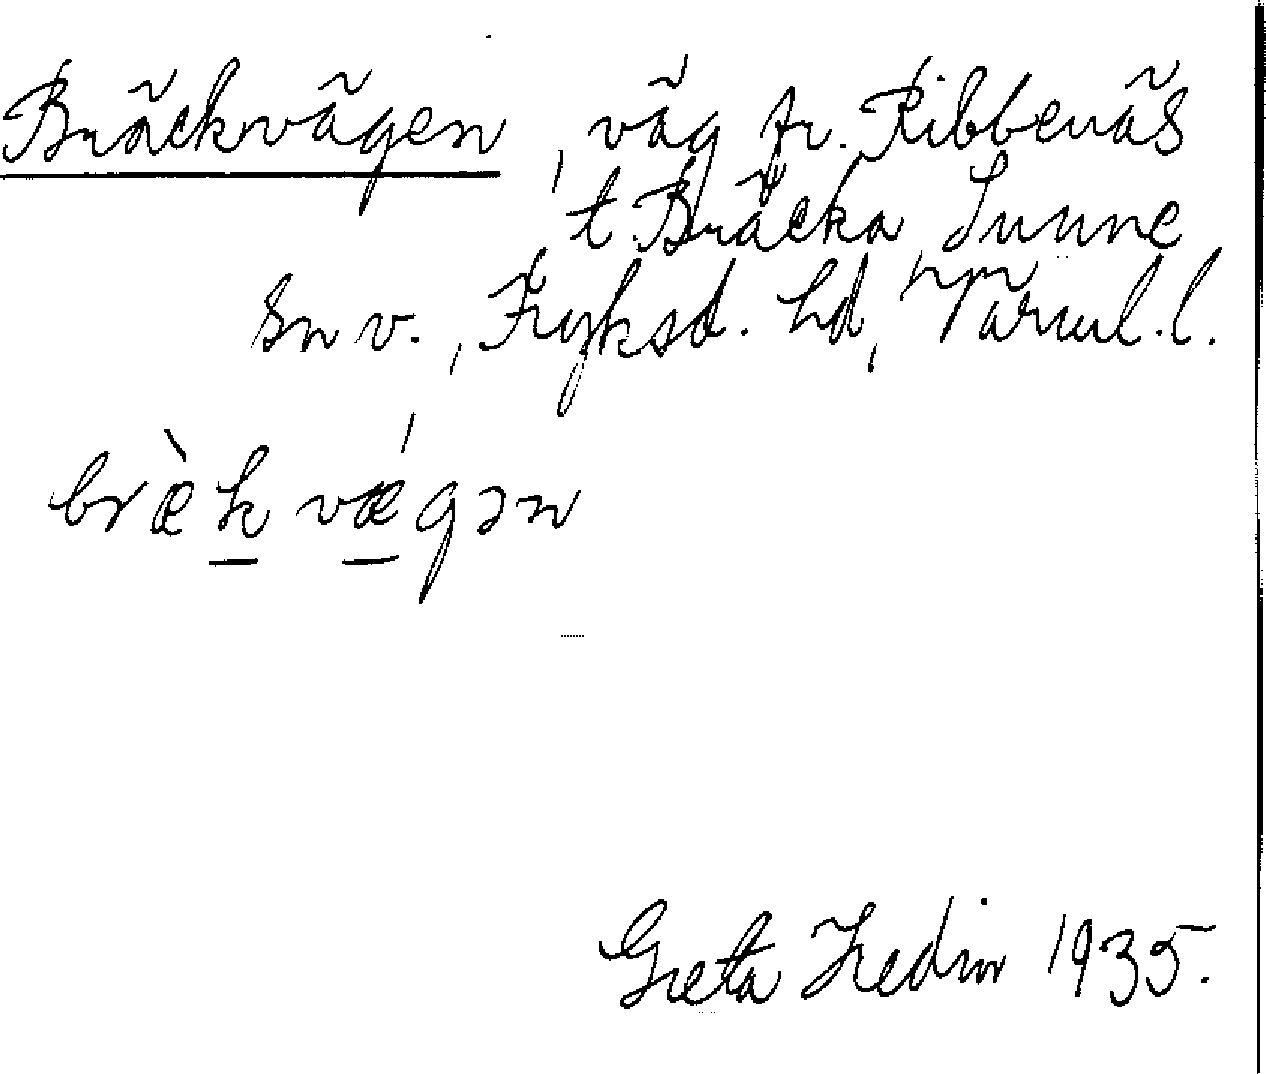 Bräckvägen, väg fr. Ribbenäs
t. Bräcka, Sunne
sn v., Fryksd. hd, Värml. l.
bræ̀k vǽgən
Greta Hedin 1935.